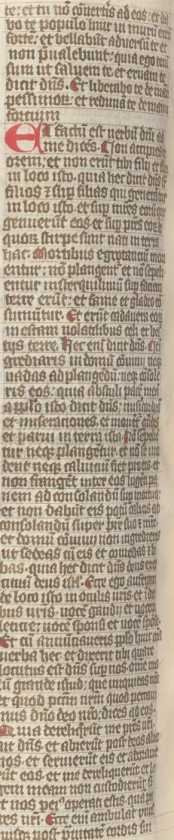 te: et tu nō cōuerteris ad eos. et da
bo te populo huic in murū ereū
forte. et bellabūt aduersū te et
non p̄ualebunt. quia ego tecū
sum ut saluem te et eruam te
dicit dn̄s. Et liberabo te de manu
pessimor̄. et redimā te de manu
fortium
Et factū est verbū dn̄i ad
me dicēs. Non accipies
vxorem. et non erūt tibi filij et filie
in loco isto. quia hec dicit dn̄s sup
filios ⁊ sup filias qui generātur
in loco isto et sup mr̄es eorū que
genuerūt eos et sup pr̄es eorū
quor̄ stirpe sunt nati in terra
hac. Mortibus egrotantiū mori
entur: nō plangent̄ et nō sepeli
entur in sterquiliniū sup faciem
terre erūt: et fame et gladio cō
sumūtur. Et erūt cadauera eorū
in escam volatilibus celi et bes
tijs terre. Hec em̄ dicit dn̄s. Ne in
grediaris in domū cōuiuij neqȝ
uadas ad plangēdū. neqȝ cōsole
ris eos: quia abstuli pacē meā
a pplo isto dicit dn̄s. misericordiā
et miseraciones. et morient̄ magni
et parui in terra ista. nō sepelien
tur neqȝ plangentur. et nō se inci
dent neqȝ caluiciū fiet pro eis. et
non frangēt inter eos lugenti pa
nem ad consolandū sup mortuo.
et non dabūt eis potū calicis ad
consolandū super pr̄e suo et mr̄e
et domū cōuiuij non ingrediaris
ut sedeas cū eis et comedas et bi
bas. quia hec dicit dn̄s deus exer
cituū deus isrl̄. Ecce ego auferam
de loco isto in oculis vr̄is et in die
bus vr̄is. vocē gaudij et vocem
leticie: vocē sponsi et vocē sponse.
Et cū annūciaueris pplo huic omīa
verba hec et dixerit tibi quare
locutus est dn̄s sup nos omē ma
lū grande istud: que iniquitas nr̄a
et quod pctm̄ nr̄m quod peccaui
mus dn̄o deo nr̄o: dices ad eos.
Quia dereliquerūt me pr̄es vr̄i.
ait dn̄s. et abierūt post deos alie
nos. et seruierūt eis et adoraue
rūt eos. et me dereliquerūt et le
gem meam non custodierūt. Sꝫ
et vos peiꝰ operati estis quā pr̄es
vr̄i. Ecce em̄ ambulat vnus
quisqȝ post prauitatē cordis sui